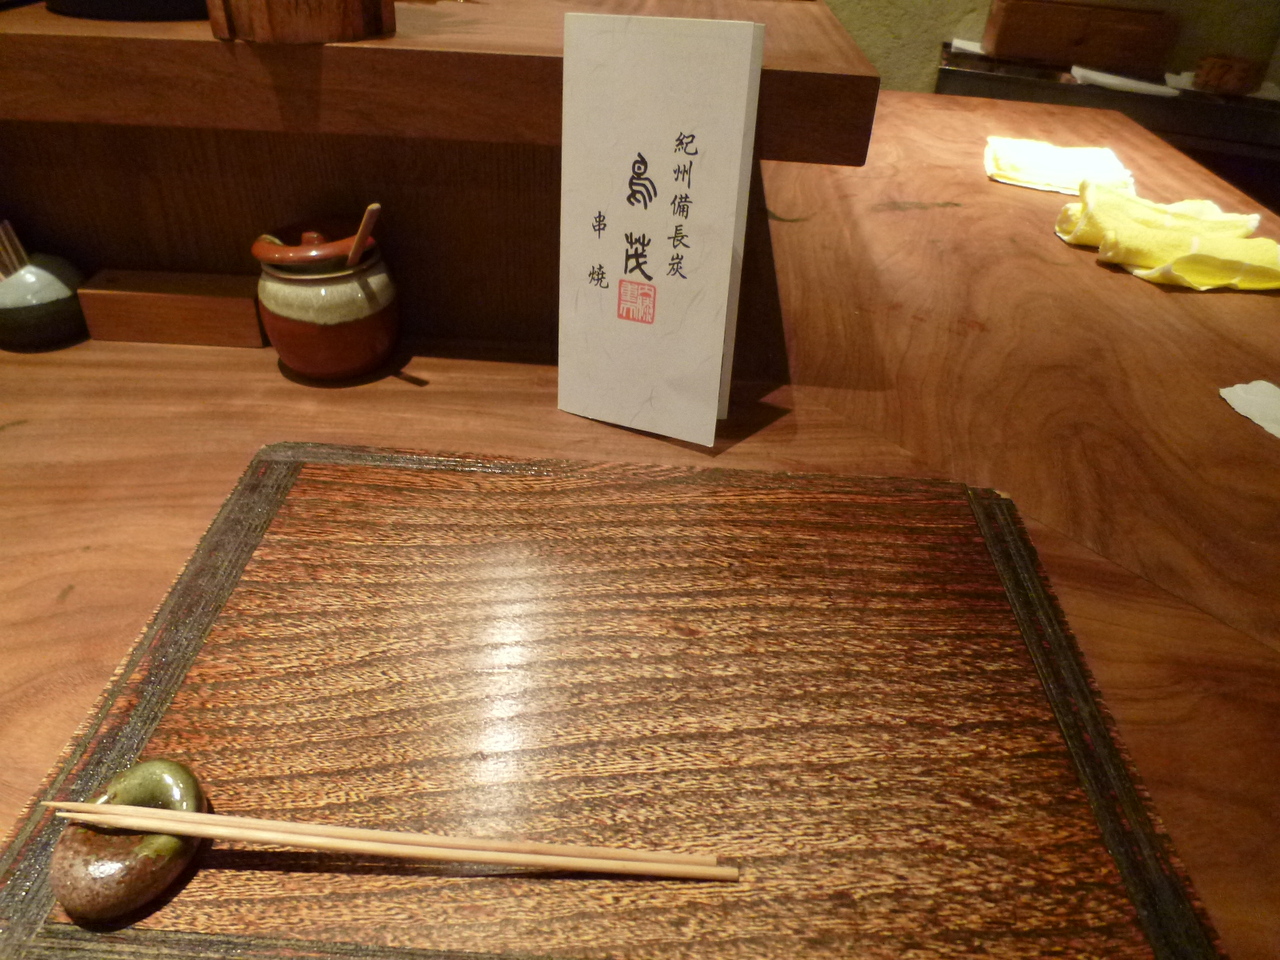 紀州備長炭
鳥茂
串燒